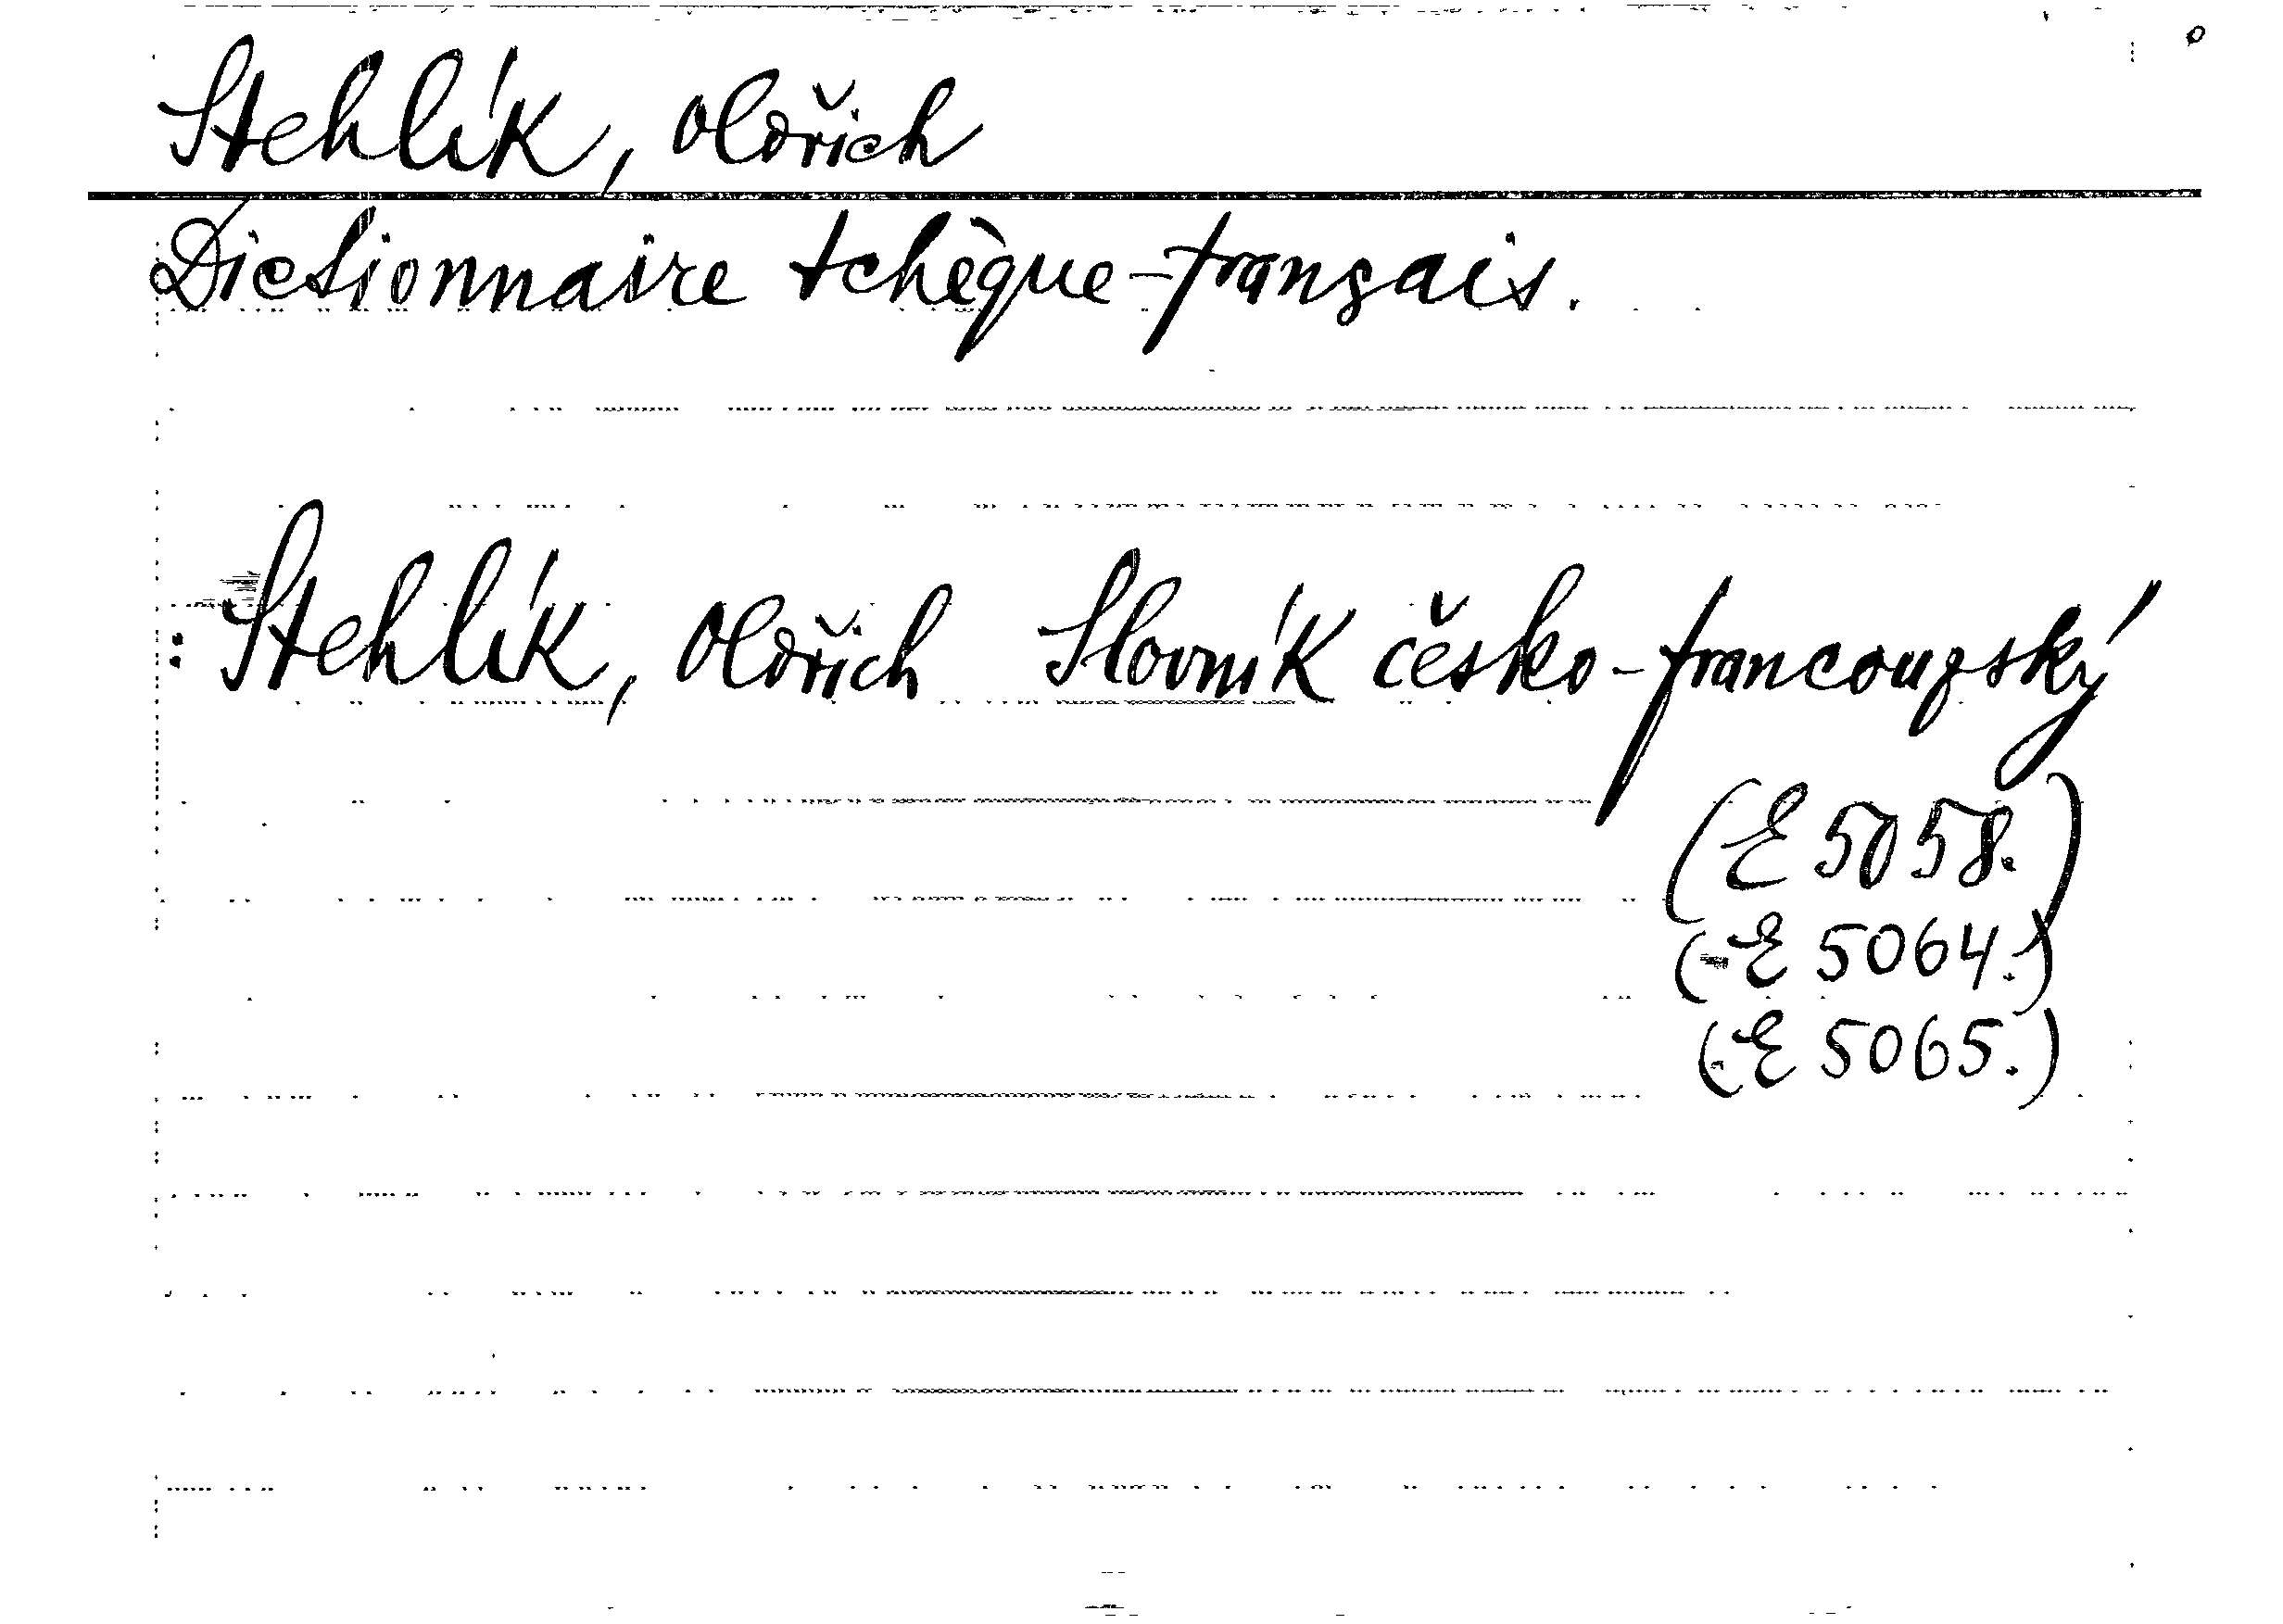 Stehlík, Oldřich
Dictionnaire tchèque-français.
: Stehlík, Oldřich Slovník česko-francouzský
(E 5058.)
(E 5064.)
(E 5065.)